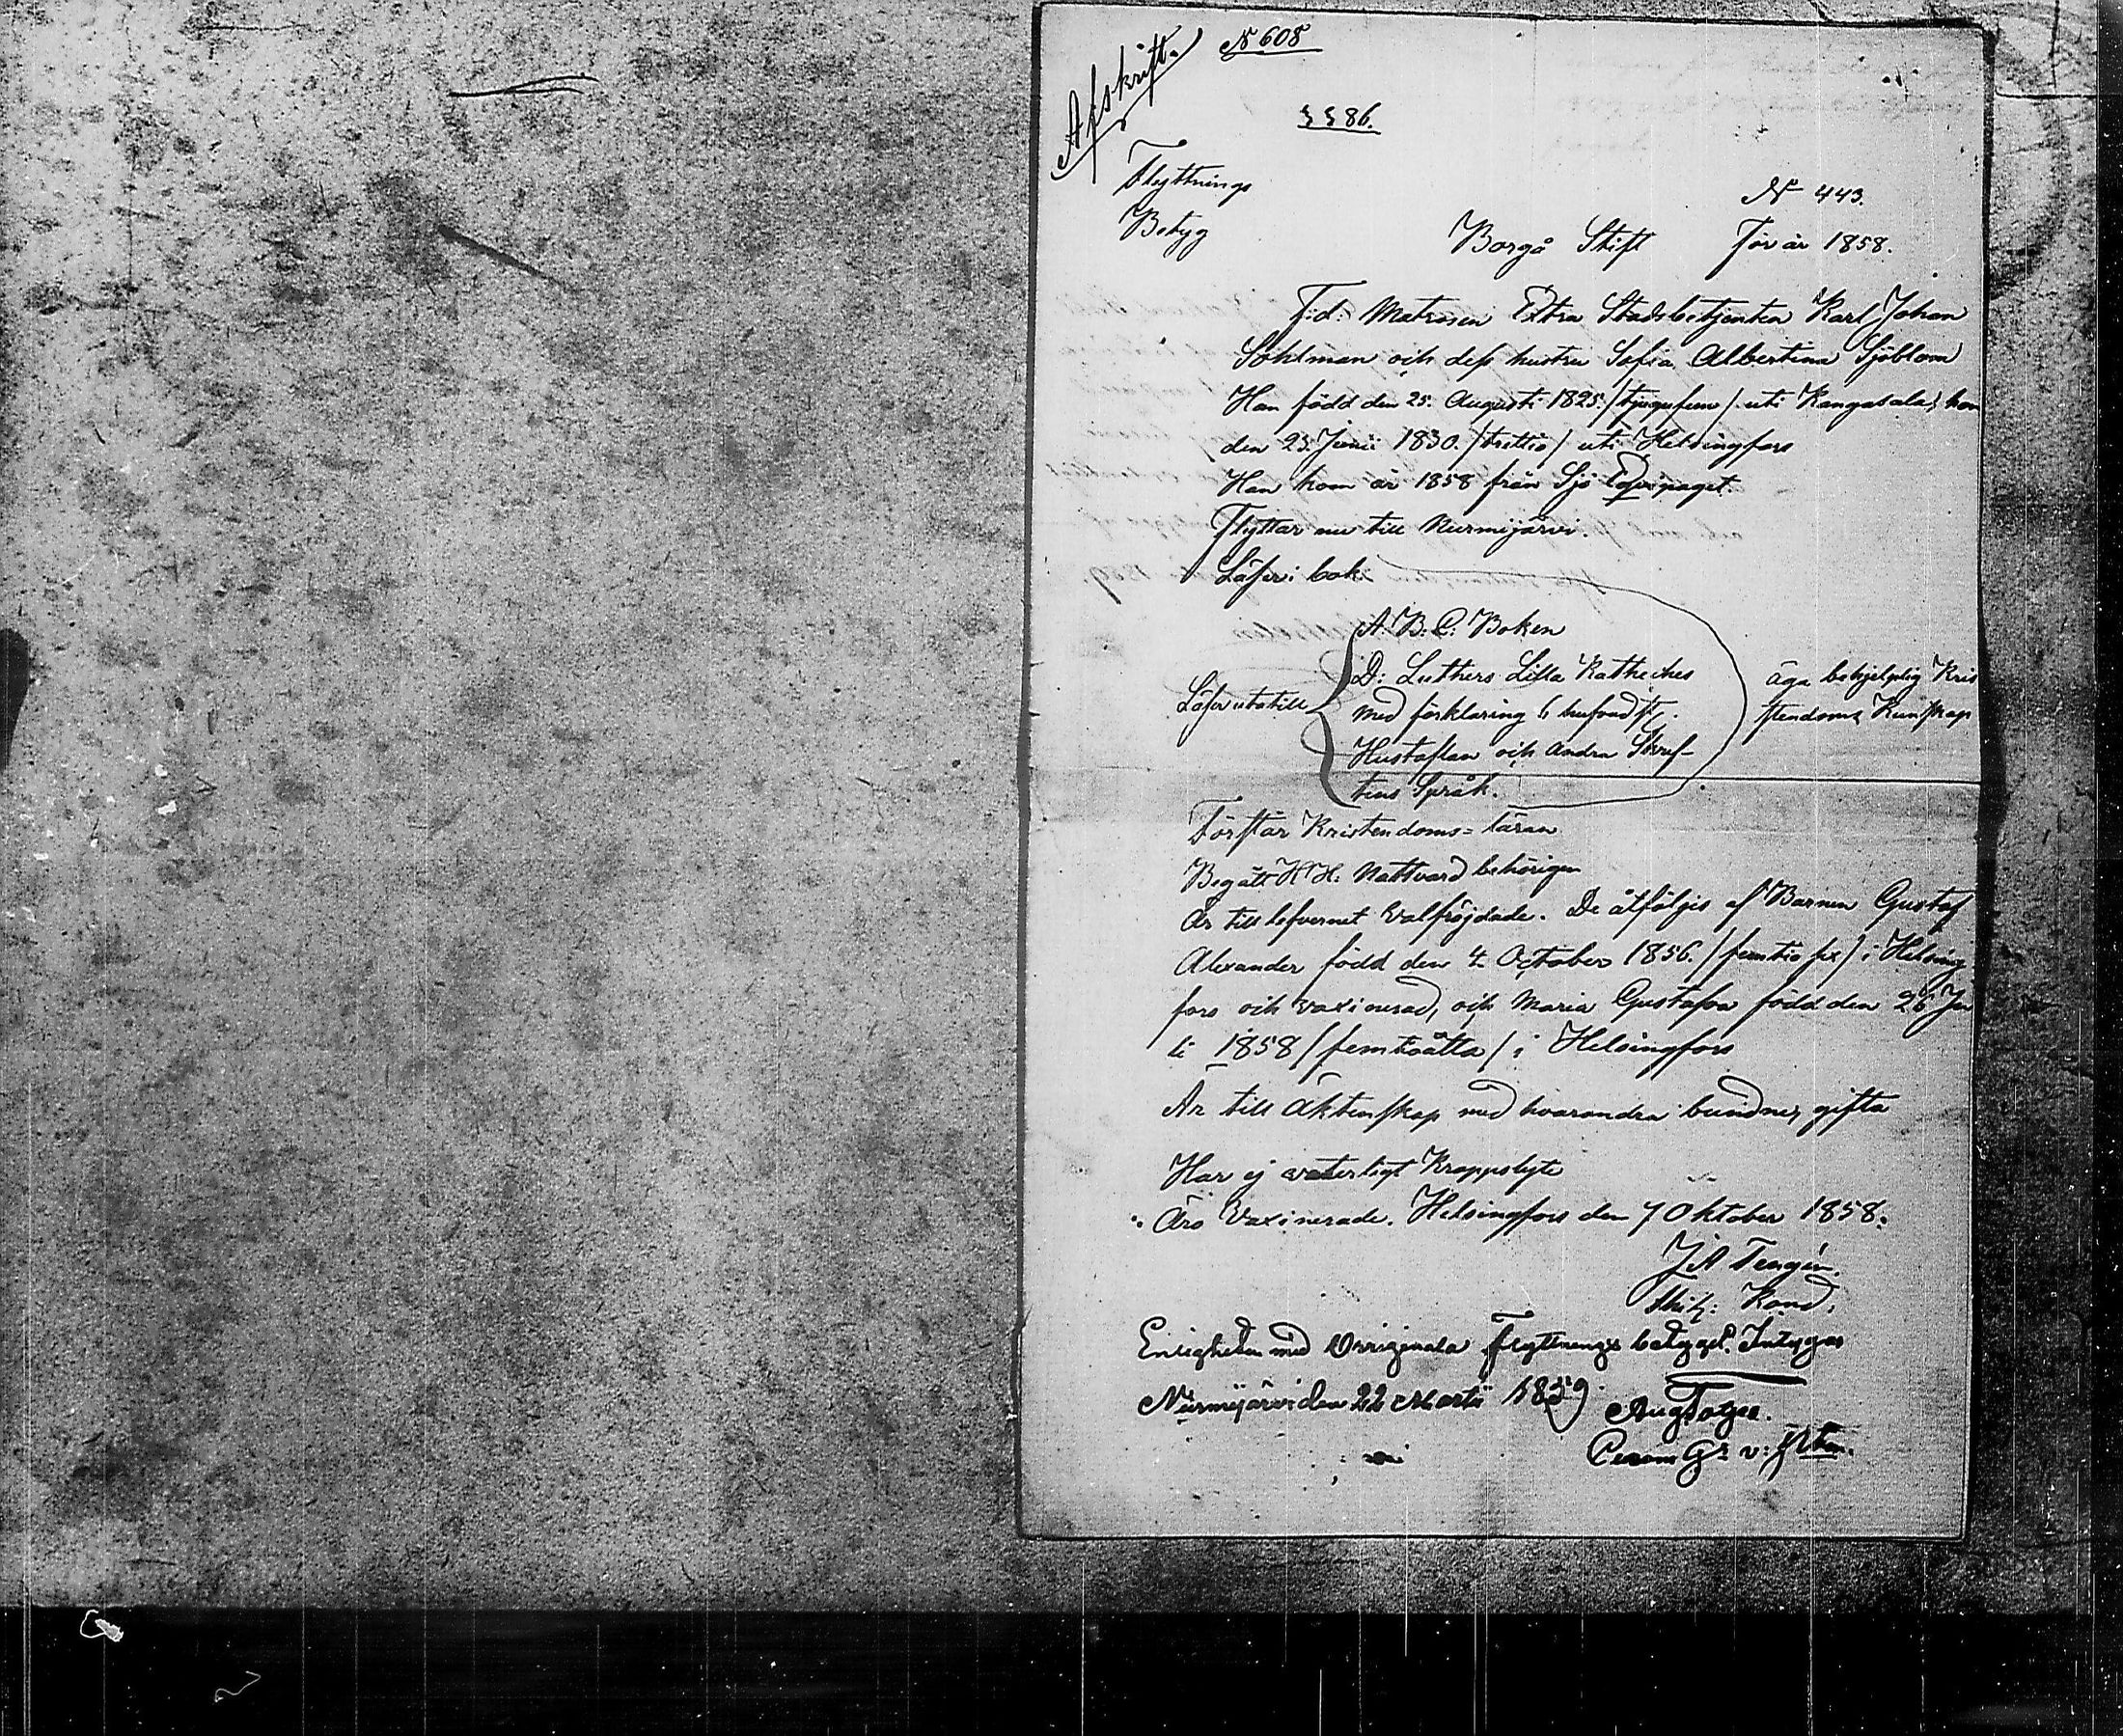 Afskrift.
№ 608
§ § 86.
Flyttnings
Betyg
№ 443.
Borgå Stift För år 1858.
F:d: Matrosen Extra Stadsbetjenten Karl Johan
Sohlman och dess hustru Sofia Albertina Sjöblom
Han född den 25. Augusti 1825 /tjugufem/ uti Kangasala, hon
den 23. Junii 1830. /trettio/ uti Helsingfors
Han kom år 1858 från Sjö Equipaget.
Flyttar nu till Nurmijärvi.
Läser i bok
Läser utatill
A. B. C. Boken
D: Luthers Lilla Katheches
med förklaring 6 hufvudst.
Hustaflan och andra Skrif-
tens Språk.
äga behjelplig Kris
stendoms Kunskap
Förstår Kristendoms=läran
Begått H. H: Nattvard behörigen
Är till lefvernet Välfrejdade. De åtföljes af Barnen Gustaf
Alexander född den 4 October 1856. /femtio sex/ i Helsing
fors och vaxinerad, och Maria Gustafva född den 26 Ju
li 1858 /femtioåtta/ i Helsingfors
Är till Äktenskap med hvarandra bundne, gifta
Har ej veterligt Kroppslyte
Äro Vaxinerade. Helsingfors den 7 Oktober 1858.
J A Tengén.
Enligheten med Orriginala flyttnings betyget. Intygar
Nurmijärvi den 22 Martii 1859